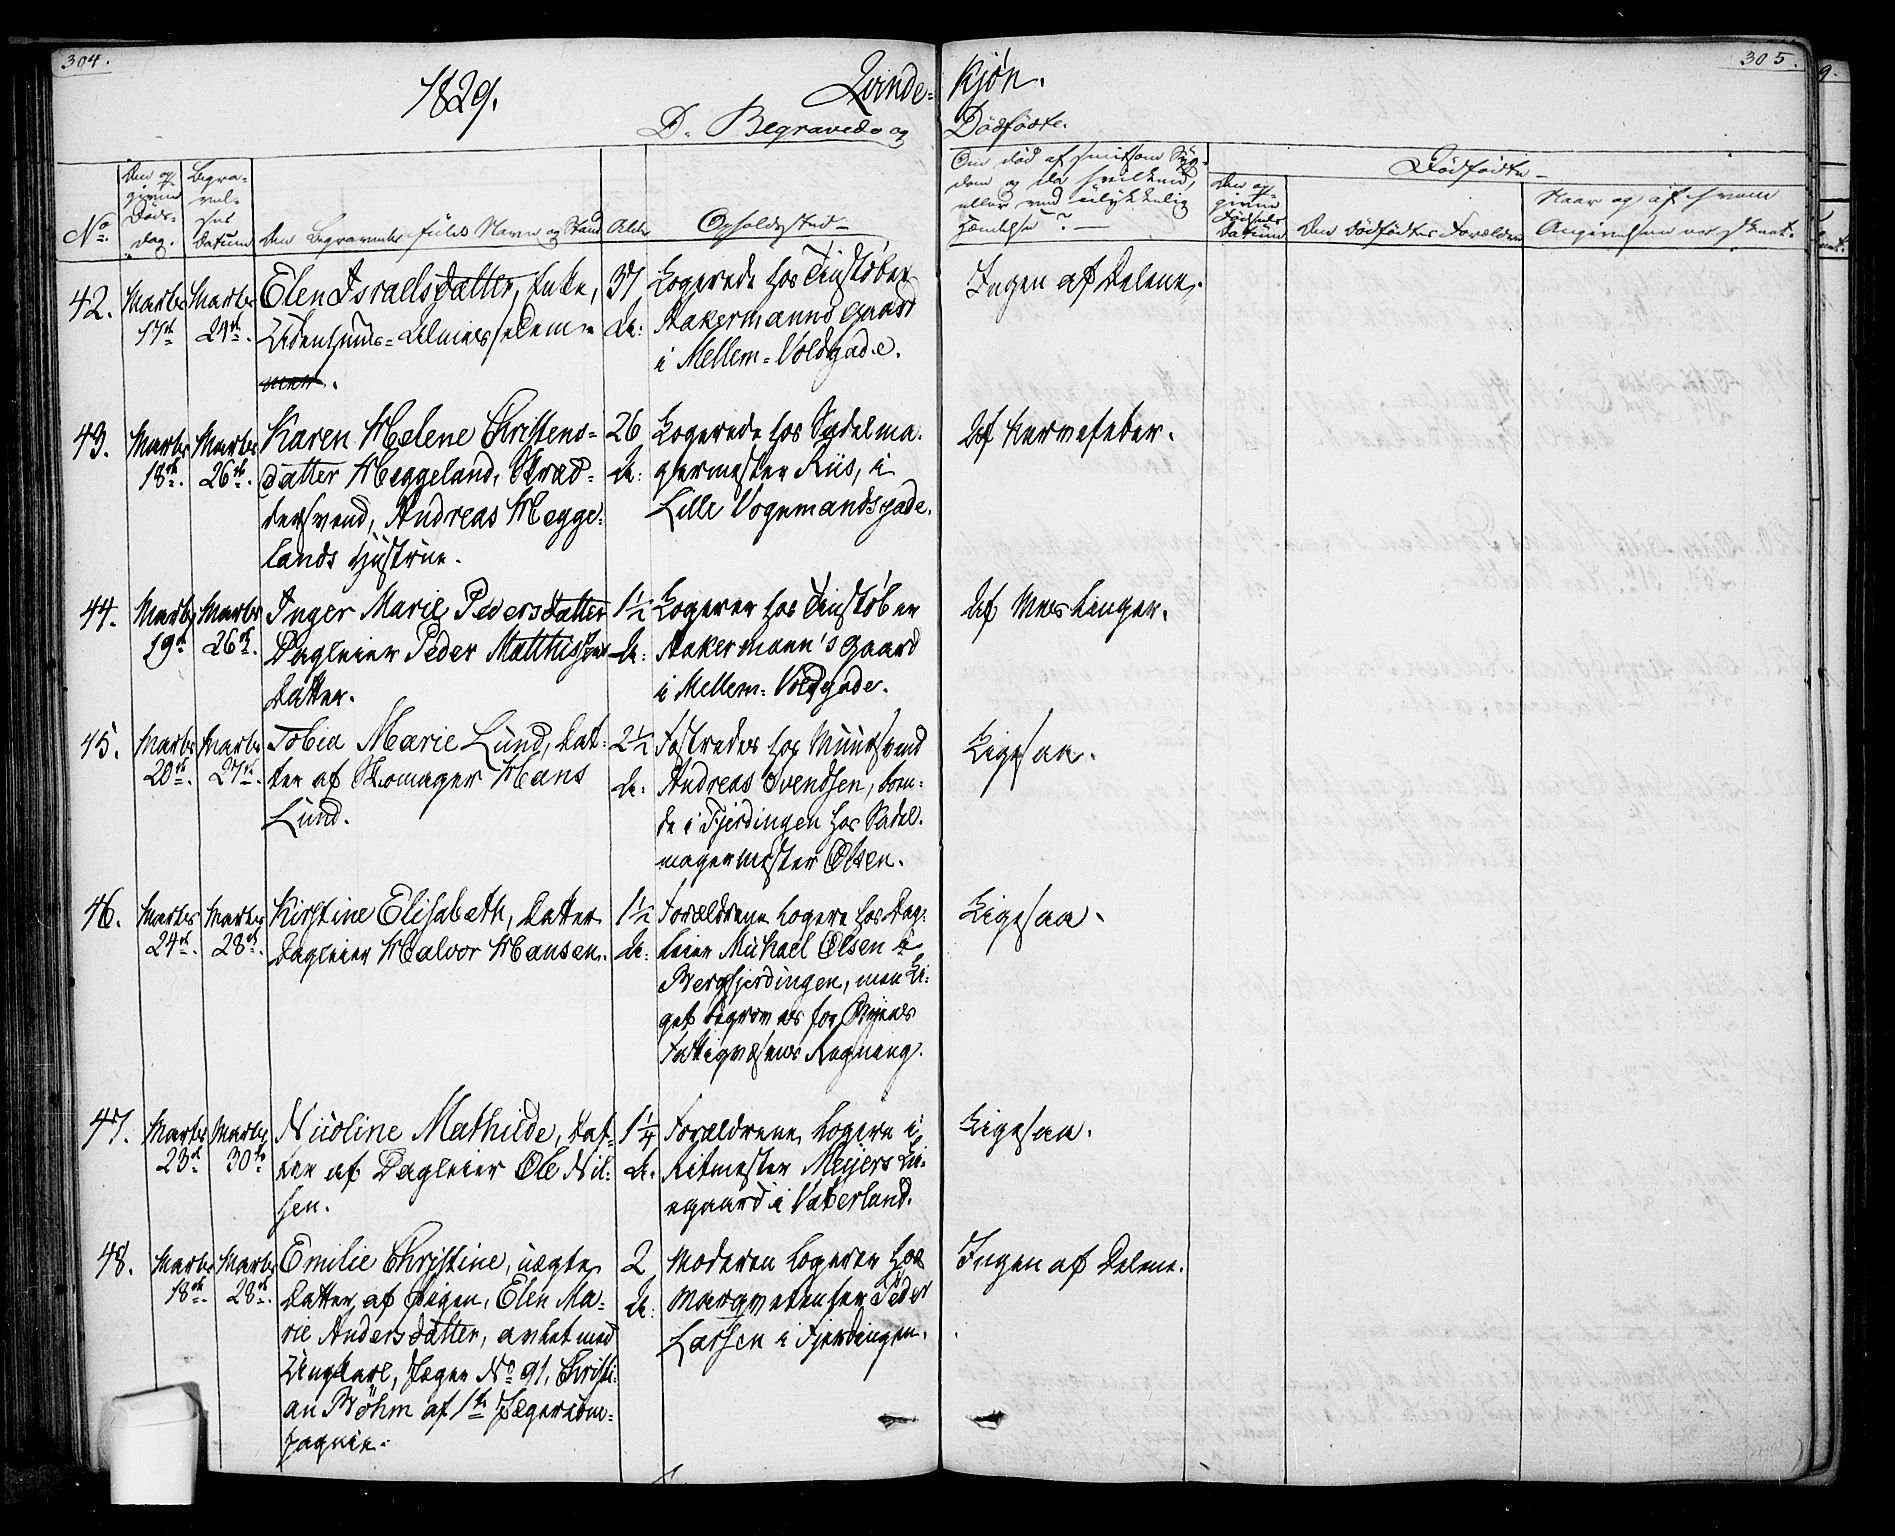 304.
305.
1829.
Qvinde-Kjøn.
D. Begravede og Dødfødte.
No.
Den opgivne Døds-dag.
Begravelses Datum
Den Begravedes fulde Navn og Stand
Alder
Opholdssted
Om død af smitsom Sygdom og da hvilken, eller ved ulykkelig Hændelse?
Dødfødte
Den opgivne Fødsels Datum
Den dødfødtes Forældre
Naar og af hvem
Angivelsen er skeet.
42.
Marts 17de
Marts 24de
Elen Israelsdatter, Enke,
Udenhuus-Almisselem
37
Logerede hos Tinstøber
Aakermanns Gaard
i Mellem-Voldgade.
Ingen af Delene.
43.
Marts 18de
Marts 26de
Karen Helene Christens-
datter Heggeland, Skræd-
dersvend, Andreas Hegge-
lands Hustrue.
26
Logerede hos Sadelma-
germester Riis, i
Lille Vognmandsgade.
Af Nervefeber.
44.
Marts 19de
Marts 26de
Inger Marie Pedersdatter
Dagleier Peder Matthissens
Datter.
1½
Logerer hos Tinstøber
Aakermann's Gaard
i Mellem-Voldgade.
Af Meslinger.
45.
Marts 20de
Marts 27de
Tobia Marie Lund, Dat-
ter af Skomager Hans
Lund.
2½
Fostredes hos Muursvend
Andreas Svendsen, boen-
de i Fjerdingen hos Sadel-
magermester Olsen.
Ligesaa.
46.
Marts 24de
Marts 28de
Kirstine Elisabeth, Datter
Dagleier Halvor Hansen.
1½
Forældrene logere hos Dag-
leier Michael Olsen i
Bergfjerdingen, men Li-
get begraves for Byens
Fattigvæsens Regning.
Ligesaa.
47.
Marts 23de
Marts 30te
Nicoline Mathilde, Dat-
ter af Dagleier Ole Nil-
sen.
1¼
Forældrene logere i
Ritmester Meyers Lei-
egaard i Vaterland.
Ligesaa.
48.
Marts 18de
Marts 28de
Emilie Christine, uægte
Datter af Pigen, Elen Ma-
rie Andersdatter, avlet med
Ungkarl, Jæger No 91, Christi-
an Bøhm af 1ste Jægercom-
pagnie.
2
Moderen logerer hos
Marqvetenter Peder
Larsen i Fjerdingen.
Ingen af Delene.